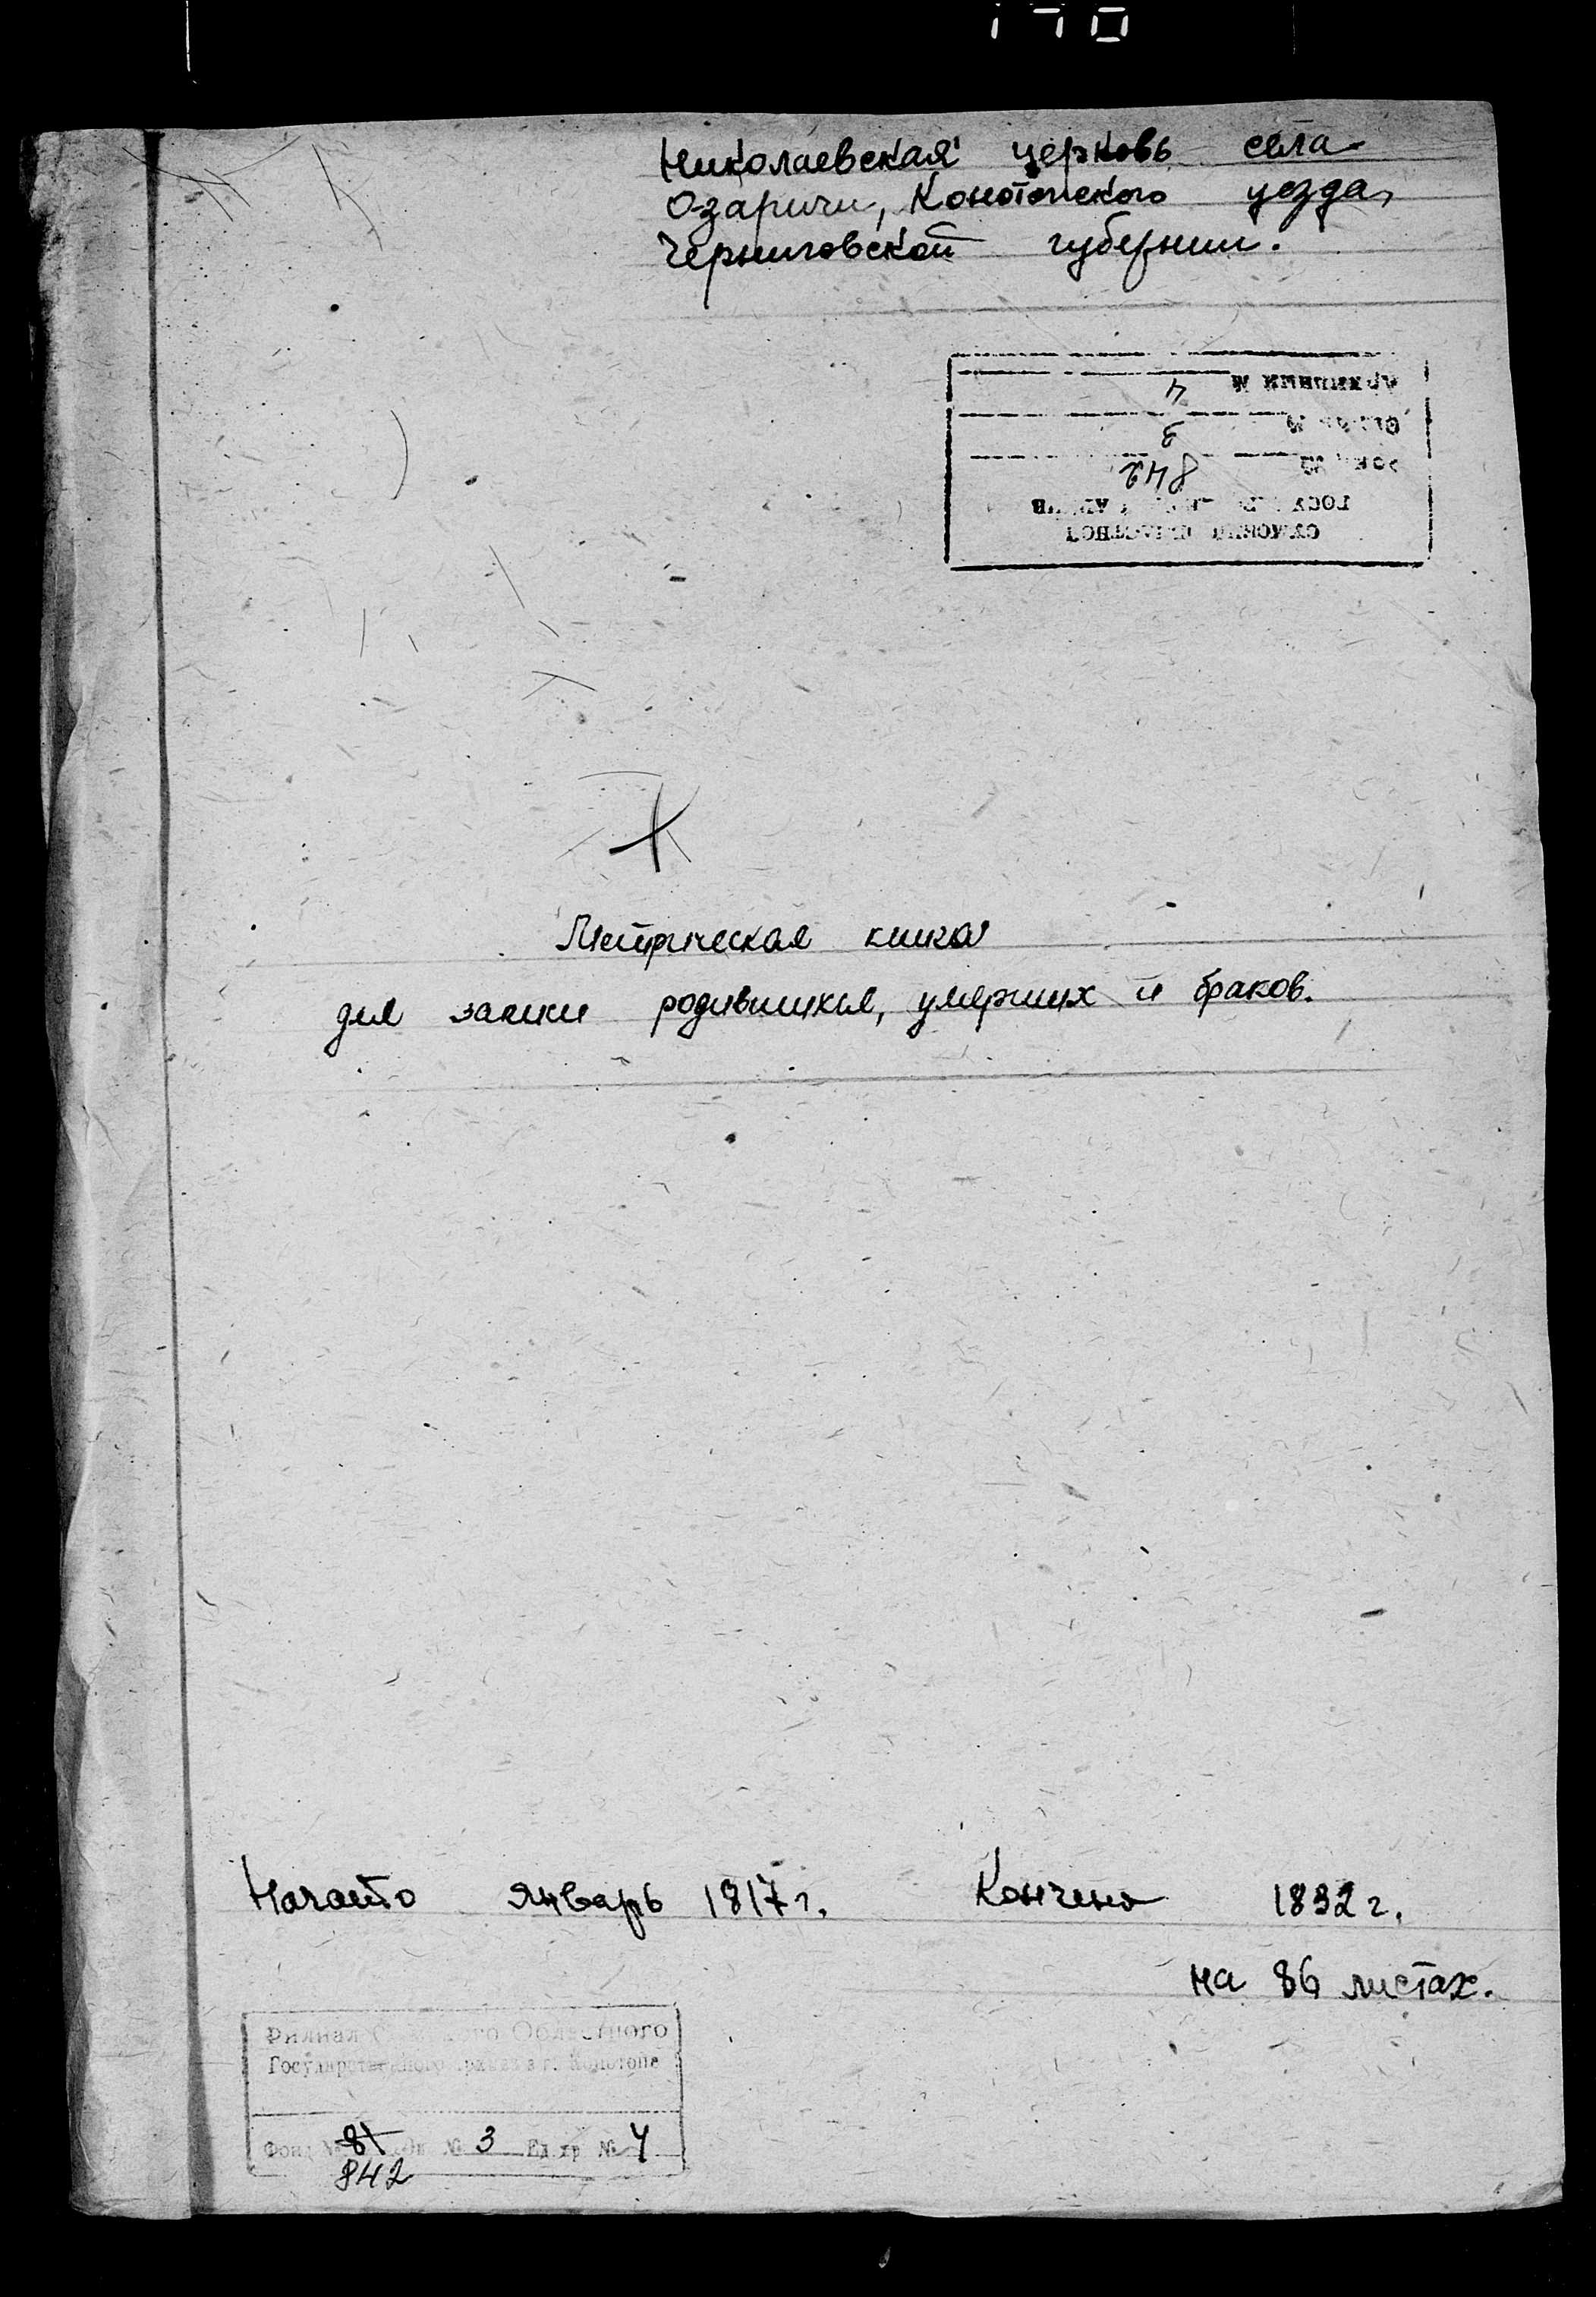 Николаевская церковь села
Озаричи, Конотопского уезда,
Черниговской губернии.
Архивный № 4
Опись № 3
Фонд № 842
ГОСУ АРХИВ
СУМСКИЙ ОБЛАСТНОЙ
Метрическая книга
для записи родившихся, умерших и браков.
Начато январь 1817 г. Кончено 1832 г.
на 86 листах.
Филиал Сумского Областного
Государственного архива в г. Конотопе
Фонд № 81 Оп № 3 Ед хр № 4
842